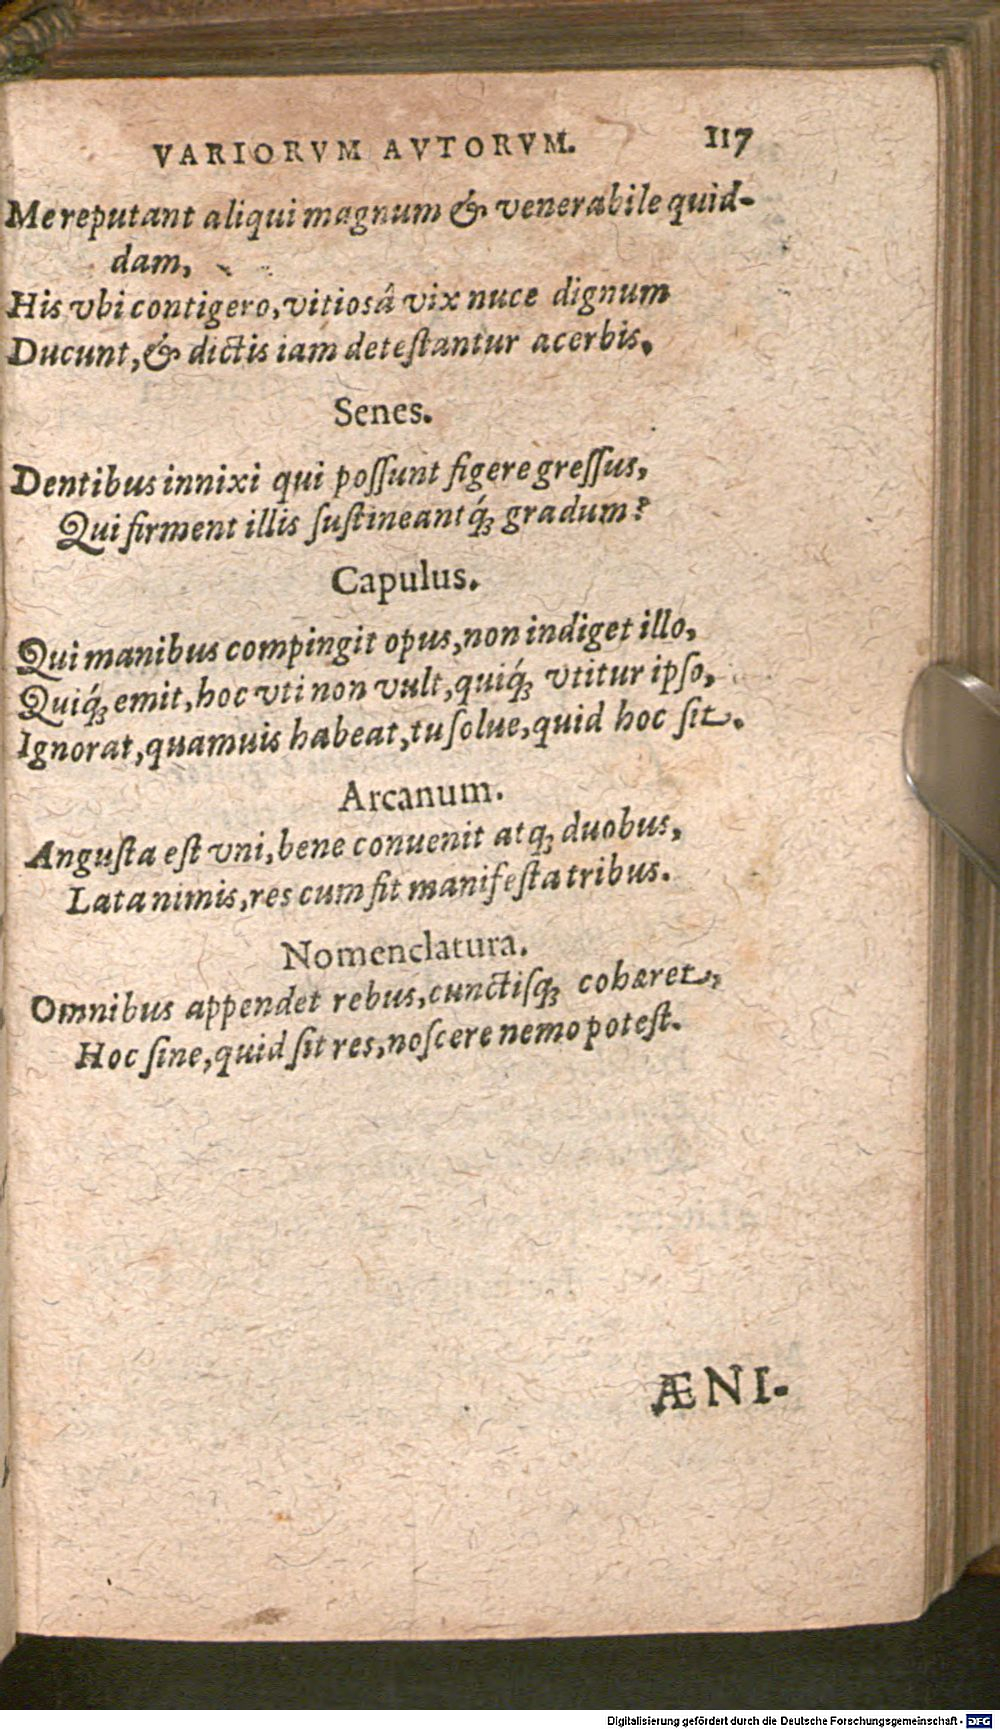 VARIORVM AVTORVM. 117
Me reputant aliqui magnum & venerabile quid-
dam,
His vbi contigero, vitiosâ vix nuce dignum
Ducunt, & dictis iam deteſtantur acerbis.
Senes.
Dentibus innixi qui poſſunt figere greſſus,
Qui firment illis ſuſtineantq́ꝫ gradum?
Capulus.
Qui manibus compingit opus, non indiget illo,
Quiq́ꝫ emit, hoc vti non vult, quiq́ꝫ vtitur ipſo,
Ignorat, quamuis habeat, tu ſolue, quid hoc ſit.
Arcanum.
Anguſta eſt vni, bene conuenit atqꝫ duobus,
Lata nimis, res cum fit manifeſta tribus.
Nomenclatura.
Omnibus appendet rebus, cunctiſqꝫ cohæret,
Hoc ſine, quid ſit res, noſcere nemo poteſt.
ÆNI.
Digitalisierung gefördert durch die Deutsche Forschungsgemeinschaft - DFG